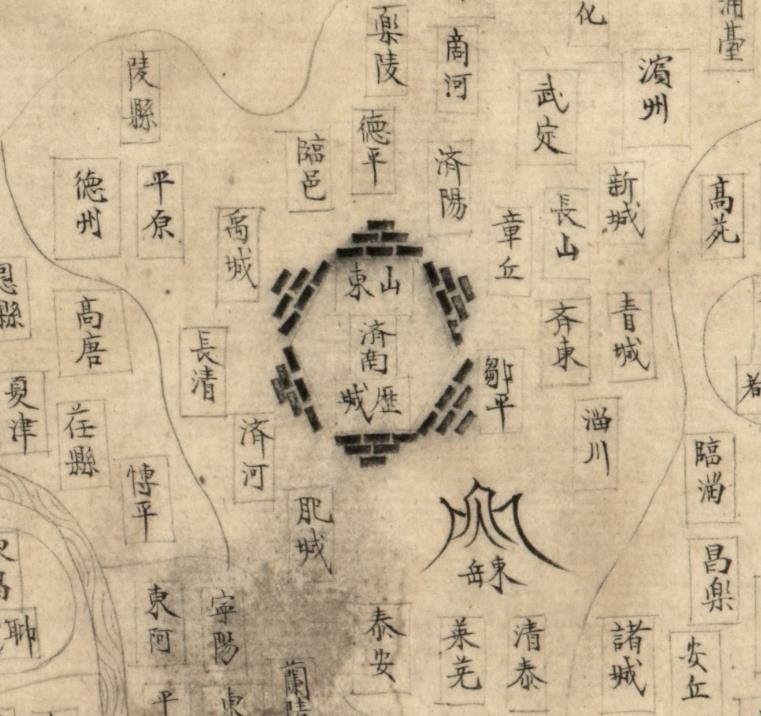 化
蒲臺
樂陵
商河
濱州
陵縣
武定
德平
臨邑
濟陽
德州
平原
新城
高苑
長山
章丘
禹城
山東
恩縣
高唐
青城
斉東
濟南
長清
鄒平
歷城
夏津
茌縣
淄川
済河
臨淄
博平
肥城
昌樂
東岳
東阿
寧陽
泰安
萊芜
清泰
諸城
安丘
蘭陵
平
東